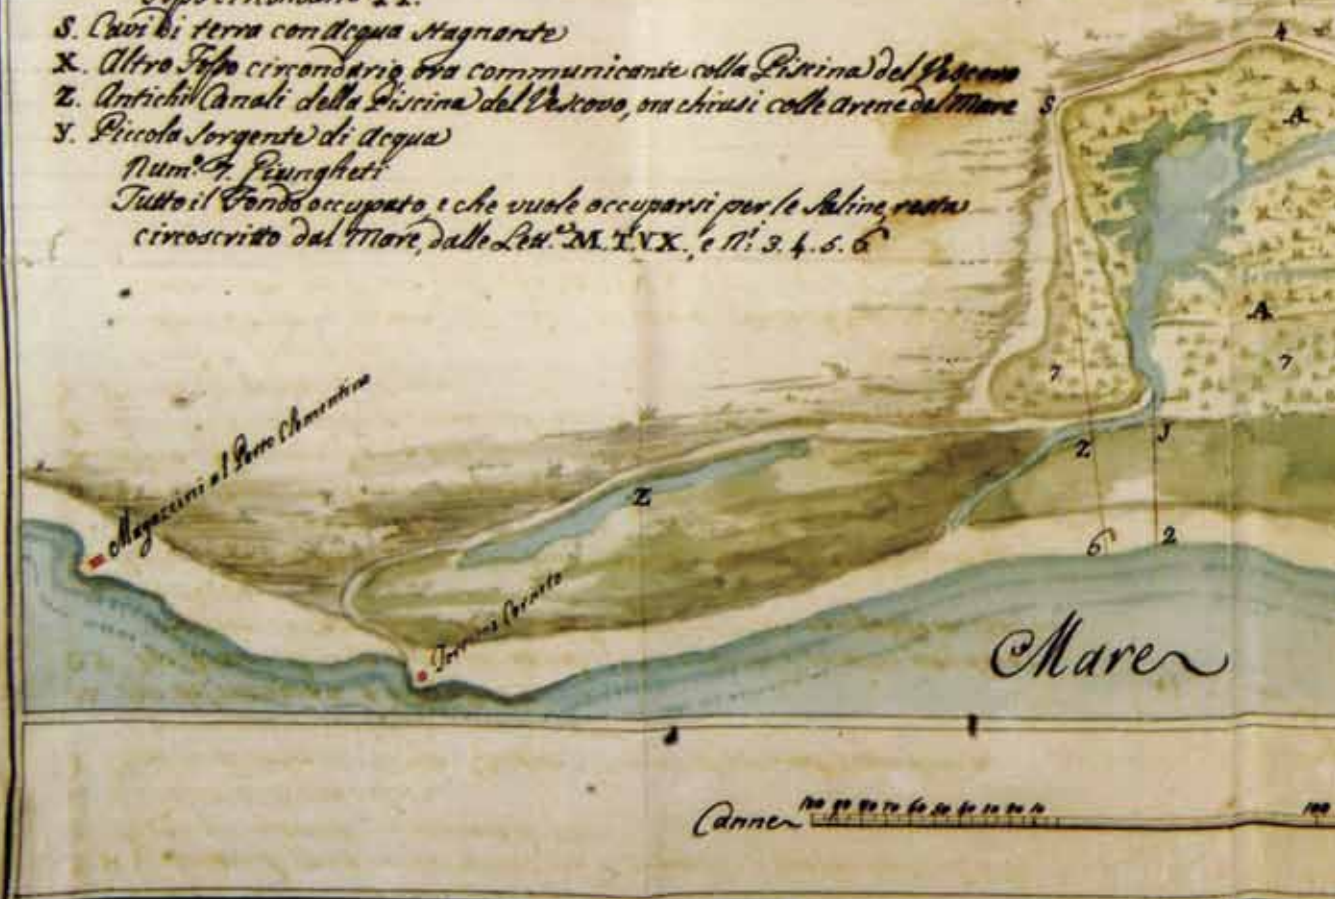 S. Cavi di terra con Acqua stagnante
X. Altro Fosso circondario ora communicante colla Piscina del Vescovo
Z. Antichi Canali della Piscina del Vescovo, ora chiusi colle arene del Mare
y. Piccola sorgente di Acqua
Num.º 7. Piungheti
Tutto il Fondo occupato e che vuole occuparsi per le Saline, resta
circoscritto dal Mare, dalle Lett.e M. T. V. X., e N.i 3. 4. 5. 6
4
S
A
A
7
7
Magazzini al Porto Clementino
Z
Z
y
6
2
Torrina Corneto
Mare
Canne
100 90 80 70 60 50 40 30 20 10
100